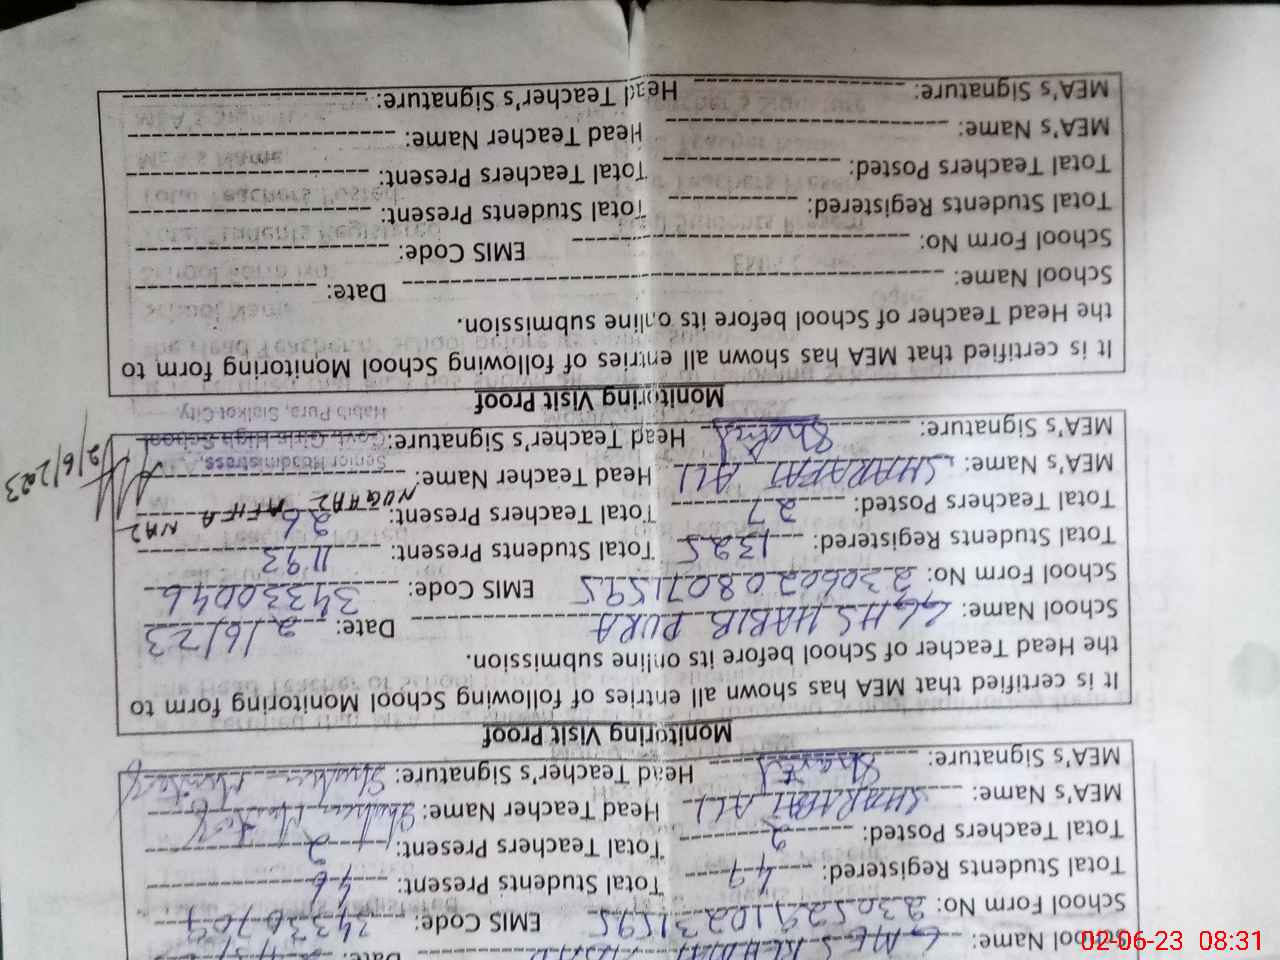 School Name: GMES Date:
School Form No: 23052911023159S EMIS Code: 34330709
Total Students Registered: 49 Total Students Present: 46
Total Teachers Posted: 2 Total Teachers Present: 2
MEA's Name: SHARAFAT ALI Head Teacher Name:
MEA's Signature: Head Teacher's Signature:
Monitoring Visit Proof
It is certified that MEA has shown all entries of following School Monitoring form to
the Head Teacher of School before its online submission.
School Name: GGHS HABIB PURA Date: 2/6/23
School Form No: 23060208071595 EMIS Code: 34330046
Total Students Registered: 1325 Total Students Present: 1193
Total Teachers Posted: 27 Total Teachers Present: 26
MEA's Name: SHARAFAT ALI Head Teacher Name:
MEA's Signature: Head Teacher's Signature:
Senior Headmistress,
Govt. Girls High School
Habib Pura, Sialkot City.
2/6/2023
Monitoring Visit Proof
It is certified that MEA has shown all entries of following School Monitoring form to
the Head Teacher of School before its online submission.
School Name: Date:
School Form No: EMIS Code:
Total Students Registered: Total Students Present:
Total Teachers Posted: Total Teachers Present:
MEA's Name: Head Teacher Name:
MEA's Signature: Head Teacher's Signature:
02-06-23 08:31